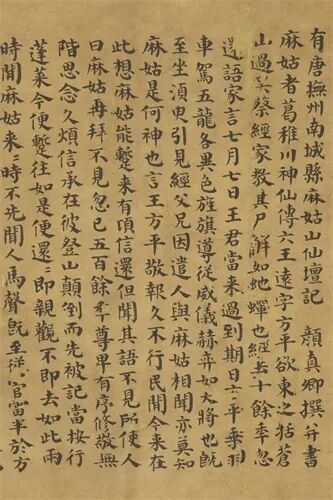 有唐撫州南城縣麻姑山仙壇記 顏真卿撰并書
麻姑者葛稚川神仙傳云王遠字方平欲東之括蒼
山過吳蔡經家教其尸解如虵蟬也經去十餘年忽
還語家言七月七日王君當來過到期日方平乘羽
車駕五龍各異色旌旗導從威儀赫弈如大將也既
至坐須臾引見經父兄因遣人與麻姑相聞亦莫知
麻姑是何神也言王方平敬報久不行民間今來在
此想麻姑能蹔來有頃信還但聞其語不見所使人
曰麻姑再拜不見忽已五百餘年尊卑有序修敬無
階思念久煩信承在彼登山顛倒而先被記當按行
蓬萊今便蹔往如是便還〻即親觀不即去如此兩
時聞麻姑來〻時不先聞人馬聲既至從官當半於方